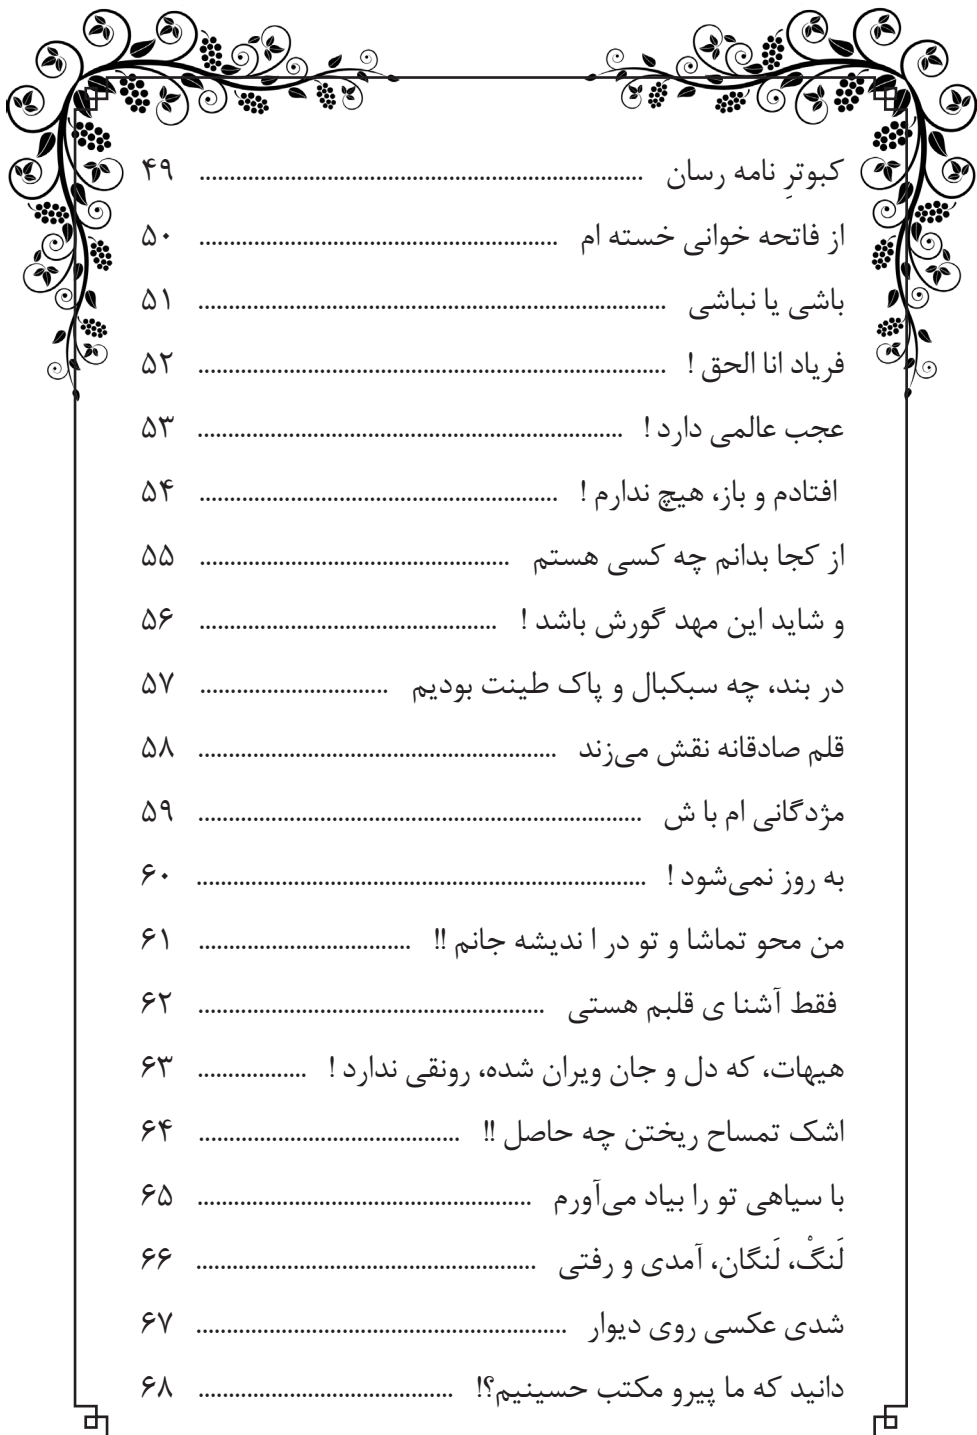 کبوترِ نامه رسان ........................................................................ ۴۹
از فاتحه خوانی خسته ام ........................................................... ۵۰
باشی یا نباشی ............................................................................ ۵۱
فریاد انا الحق ! ............................................................................ ۵۲
عجب عالمی دارد ! ..................................................................... ۵۳
افتادم و باز، هیچ ندارم ! ........................................................... ۵۴
از کجا بدانم چه کسی هستم ................................................... ۵۵
و شاید این مهد گورش باشد ! ................................................. ۵۶
در بند، چه سبکبال و پاک طینت بودیم ............................... ۵۷
قلم صادقانه نقش می‌زند ........................................................... ۵۸
مژدگانی ام با ش ......................................................................... ۵۹
به روز نمی‌شود ! .......................................................................... ۶۰
من محو تماشا و تو در ا ندیشه جانم !! ................................... ۶۱
فقط آشنا ی قلبم هستی ......................................................... ۶۲
هیهات، که دل و جان ویران شده، رونقی ندارد ! .................. ۶۳
اشک تمساح ریختن چه حاصل !! ........................................... ۶۴
با سیاهی تو را بیاد می‌آورم ....................................................... ۶۵
لَنگْ، لَنگان، آمدی و رفتی ........................................................ ۶۶
شدی عکسی روی دیوار ............................................................. ۶۷
دانید که ما پیرو مکتب حسینیم؟! .......................................... ۶۸